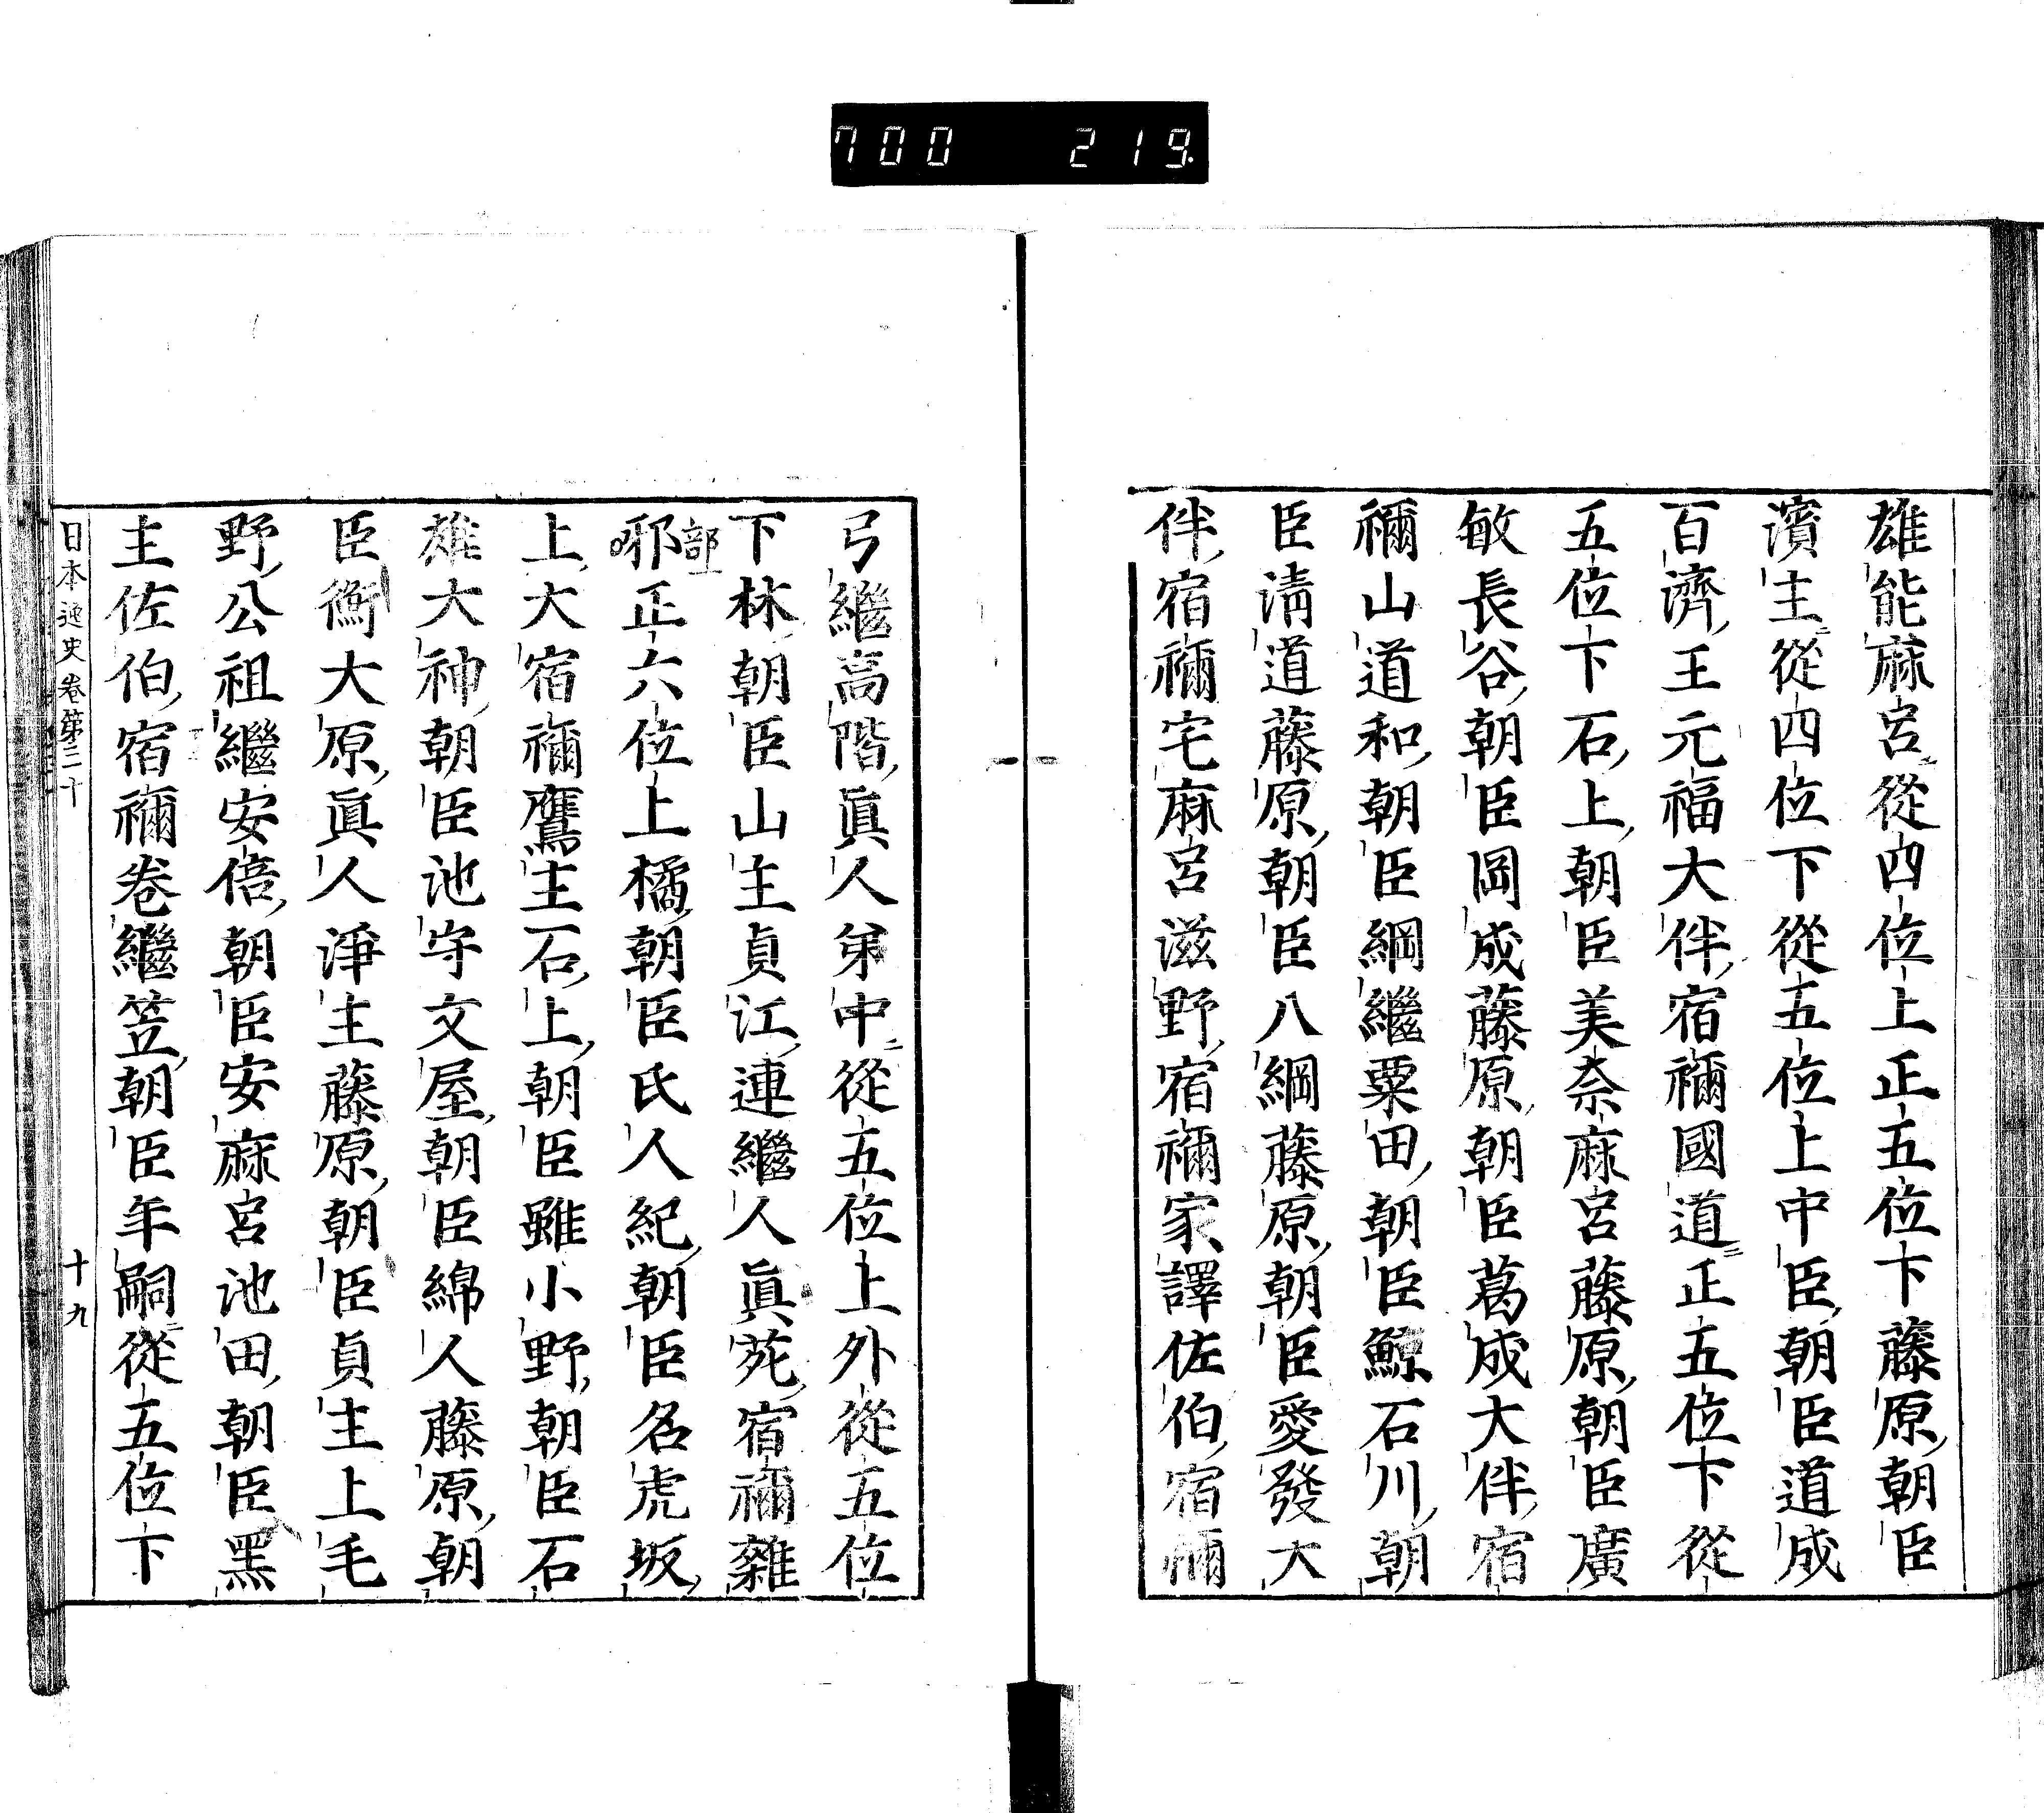 700 219
雄能麻呂從四位上正五位下藤原朝臣
濱主從四位下從五位上中臣朝臣道成
百濟王元福大伴宿禰國道正五位下從
五位下石上朝臣美奈麻呂藤原朝臣廣
敏長谷朝臣岡成藤原朝臣葛成大伴宿
禰山道和朝臣綱繼粟田朝臣鯨石川朝
臣清道藤原朝臣八綱藤原朝臣愛發大
伴宿禰宅麻呂滋野宿禰家譯佐伯宿禰
弓繼高階眞人弟中從五位上外從五位
下林朝臣山主貞江連繼人眞苑宿禰雜
部
邪正六位上橘朝臣氏人紀朝臣名虎坂
上大宿禰鷹主石上朝臣雖小野朝臣石
雄大神朝臣池守文屋朝臣綿人藤原朝
臣衡大原眞人淨主藤原朝臣貞主上毛
野公祖繼安倍朝臣安麻呂池田朝臣黑
主佐伯宿禰卷繼笠朝臣年嗣從五位下
日本逸史卷第三十 十九